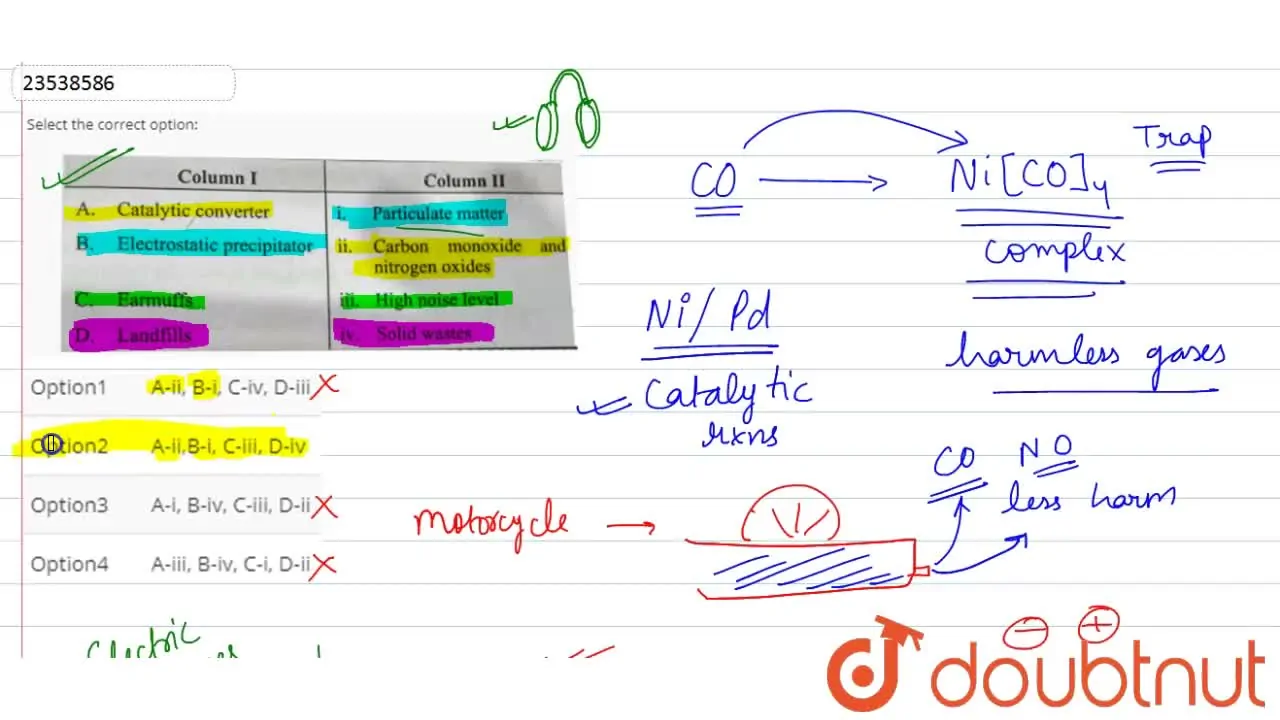 23538586
Select the correct option:
Column I Column II
A. Catalytic converter i. Particulate matter
B. Electrostatic precipitator ii. Carbon monoxide and
nitrogen oxides
C. Earmuffs iii. High noise level
D. Landfills iv. Solid wastes
Option1 A-ii, B-i, C-iv, D-iii
Option2 A-ii,B-i, C-iii, D-iv
Option3 A-i, B-iv, C-iii, D-ii
Option4 A-iii, B-iv, C-i, D-ii
Trap
CO Ni[CO]4
complex
Ni/Pd
harmless gases
Catalytic
rxns
CO NO
less harm
motorcycle
- +
Electric
doubtnut